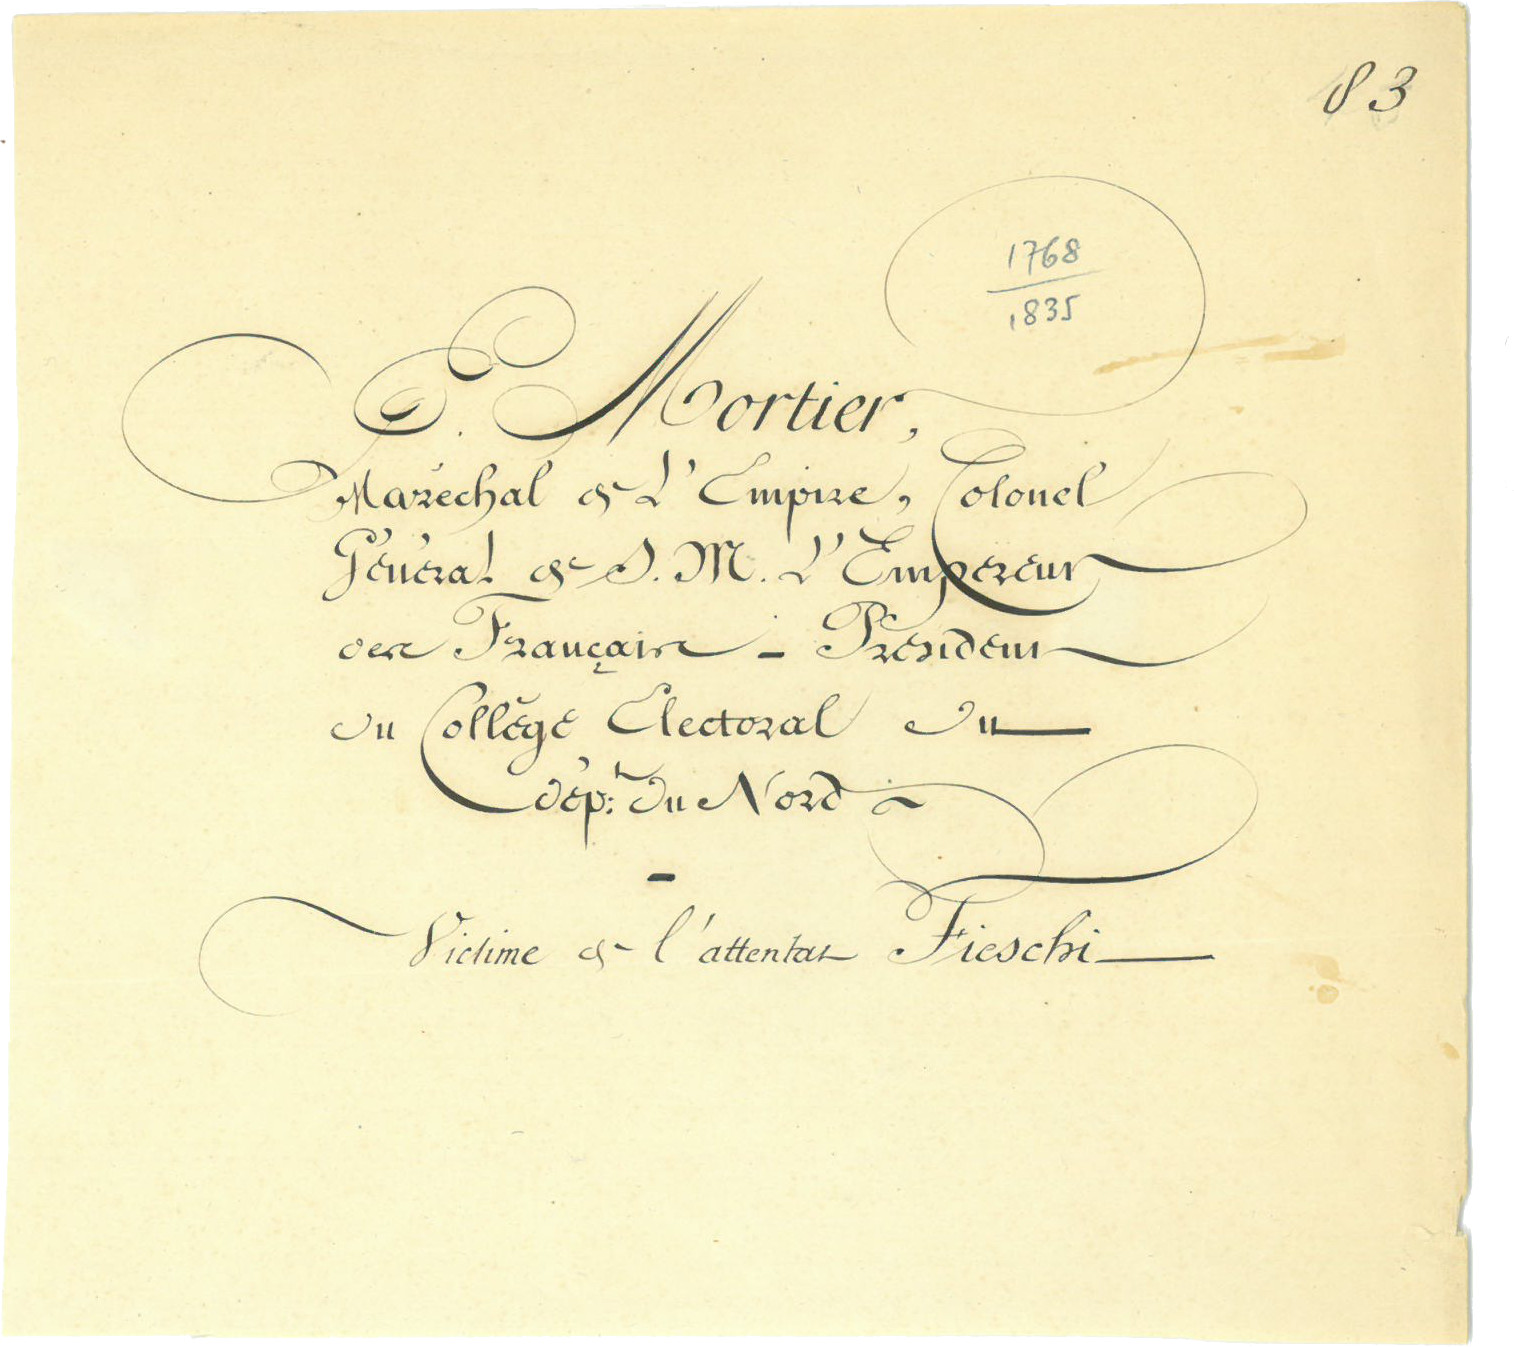 83
1768
1835
E. Mortier,
Maréchal de L'Empire, Colonel
Général de S. M. L'Empereur
des Français - Président
du Collège Electoral du
dépt: du Nord
-
Victime de l'attentat Fieschi